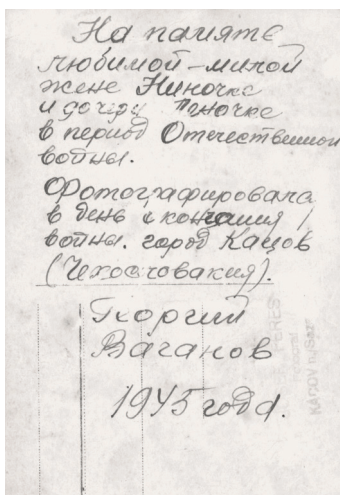 На память
любимой-милой
жене Ниночке
и дочери Инночке
в период Отечественной
войны.
Фотографирована
в день окончания
войны. город Кацов
(Чехословакия).
Георгий
Ваганов
1945 года.
KÁCOV